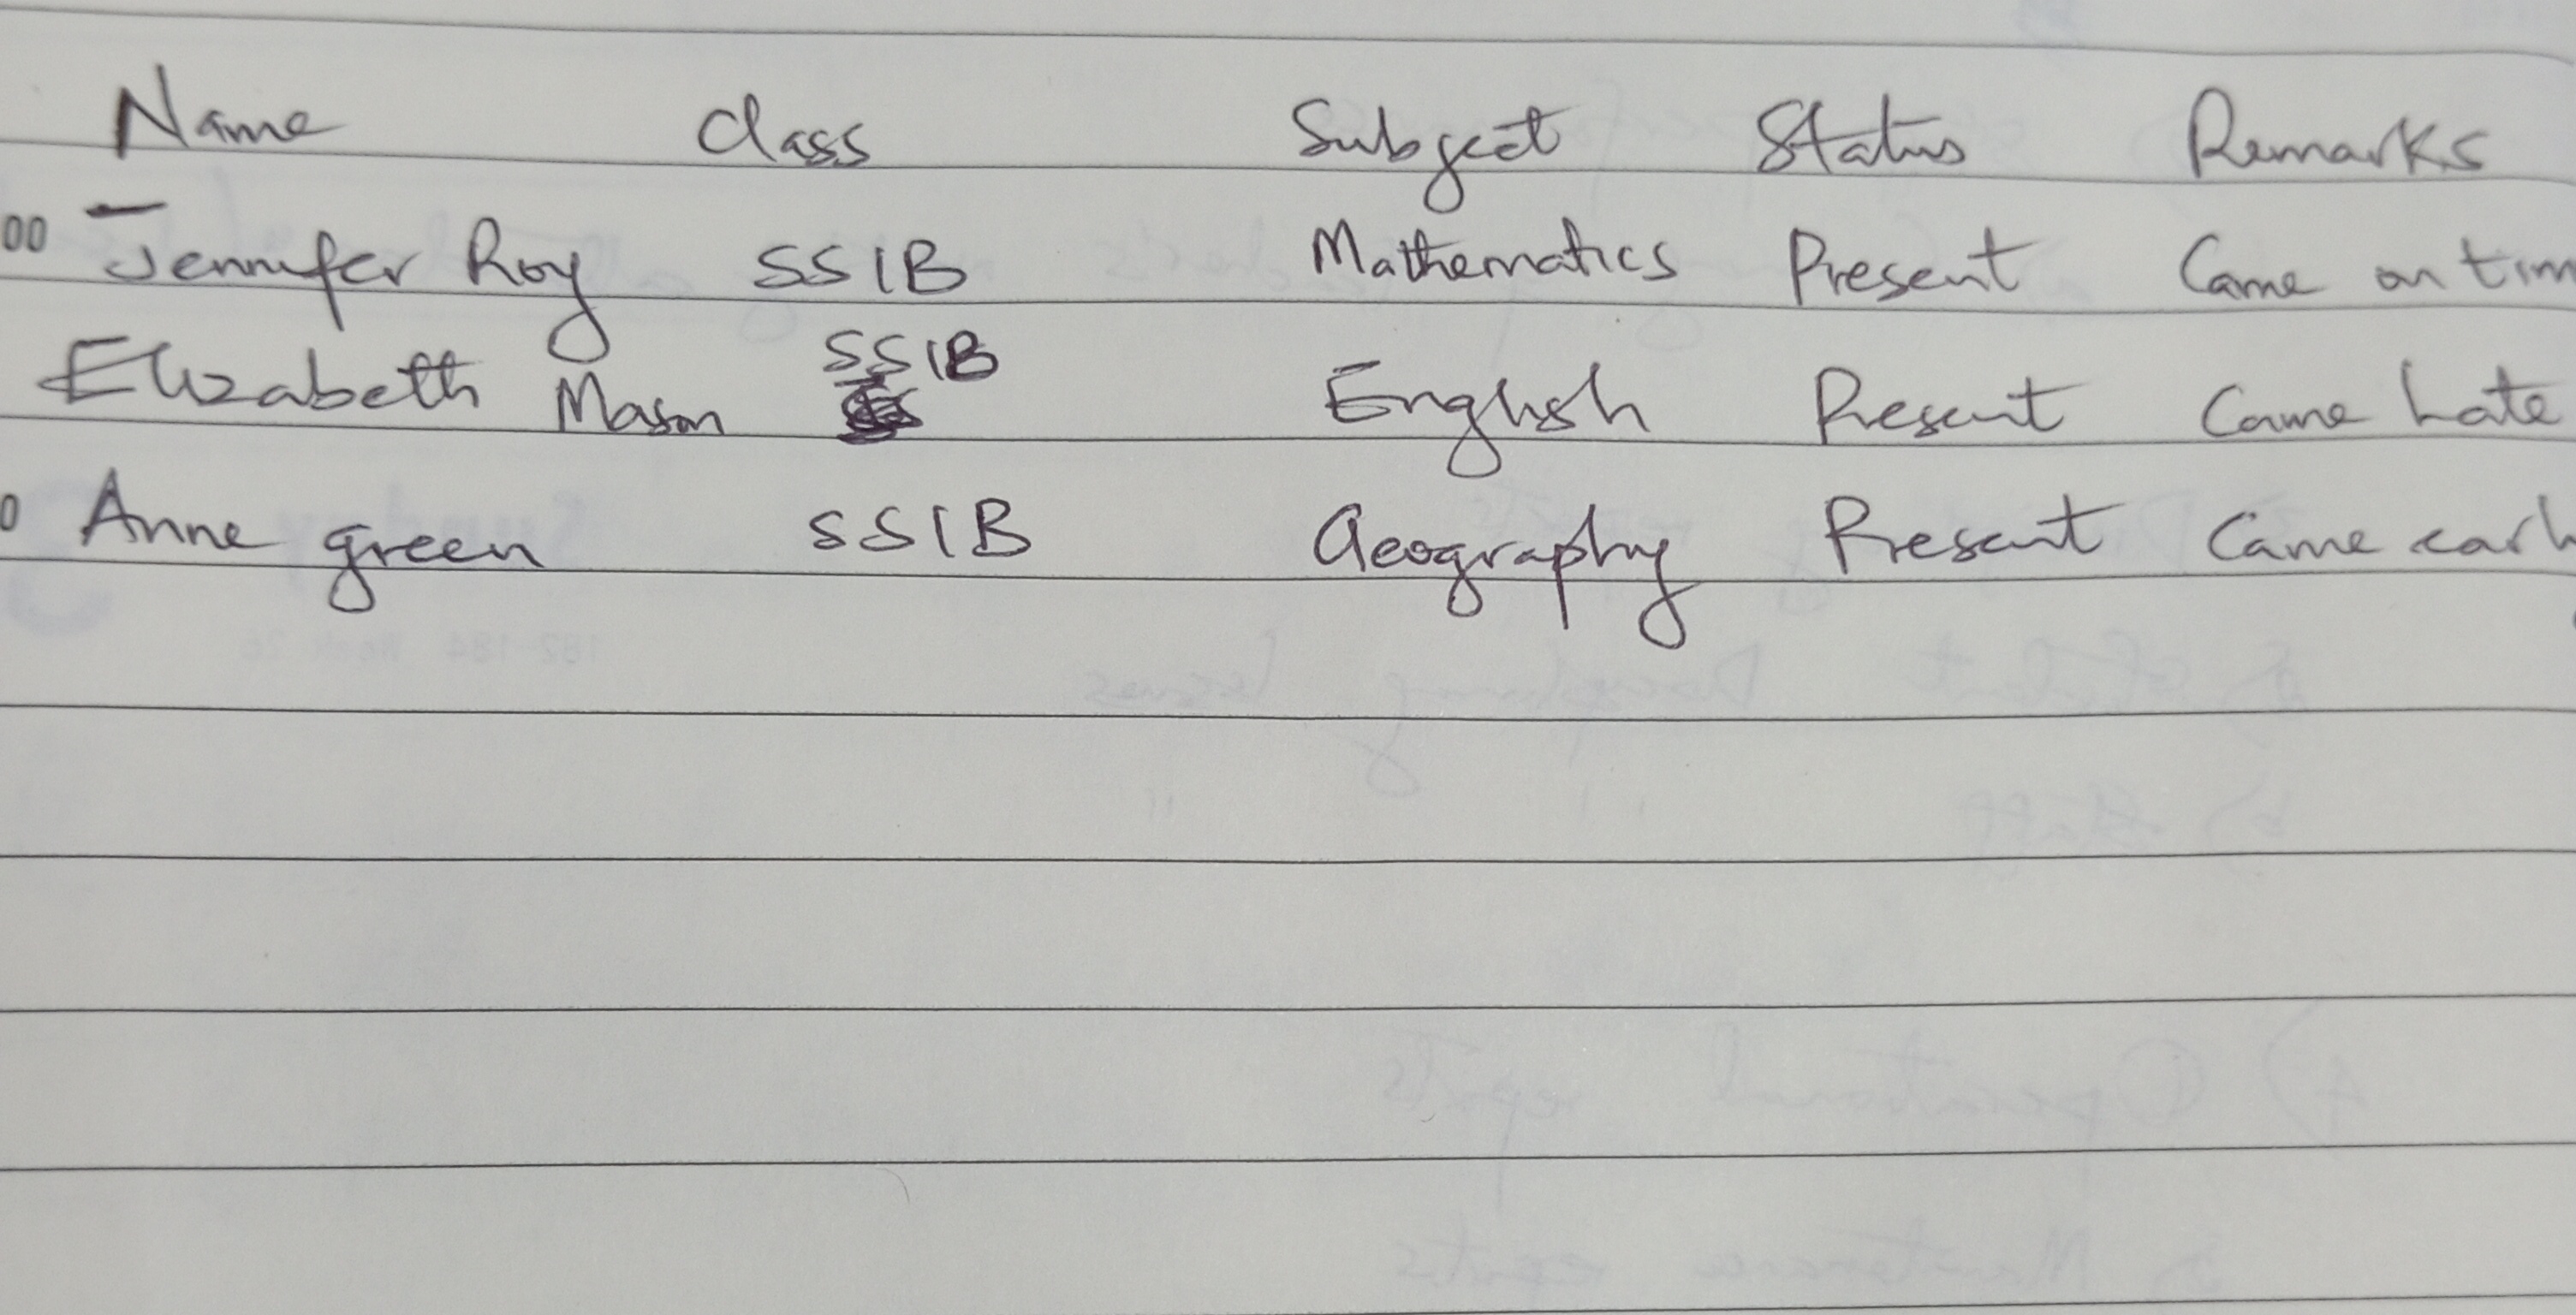 Name Class Subject Status Remarks
00 Jennifer Roy SS1B Mathematics Present Came on tim
Elizabeth Mason SS1B English Present Came Late
0 Anne green SS1B Geography Present Came earl